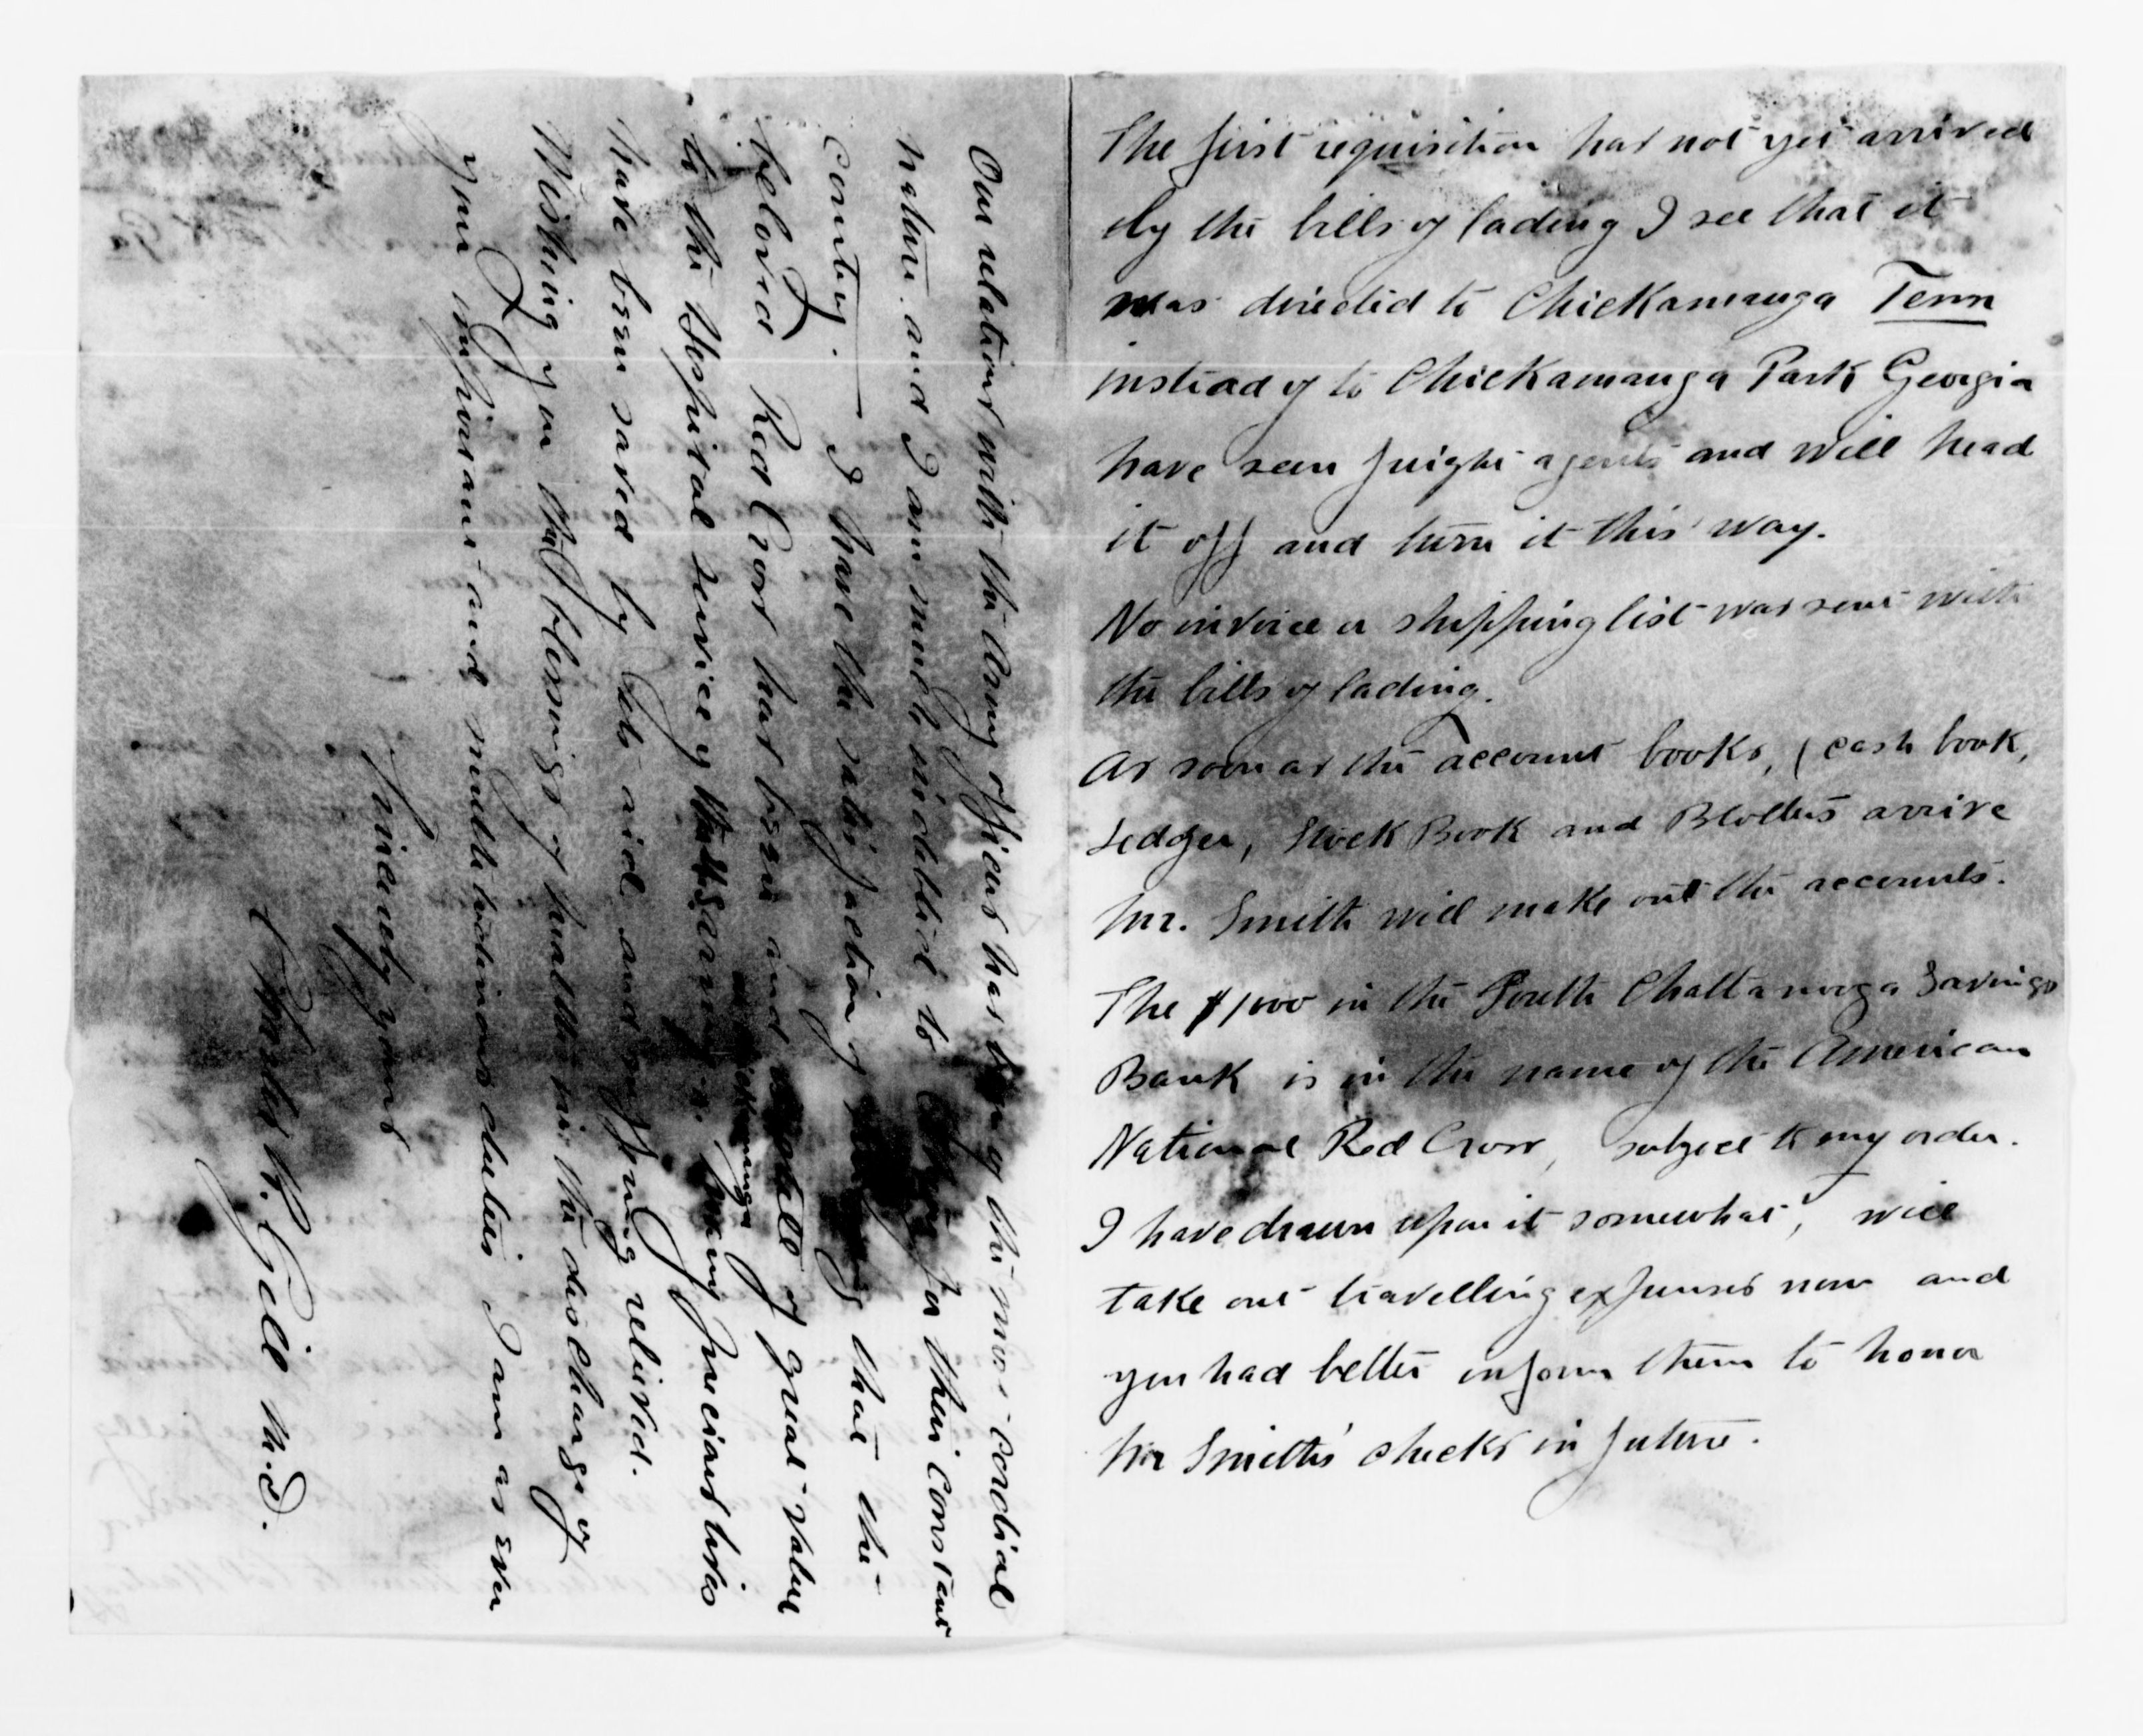 The first requisition has not yet arrived
by the bills of lading I see that it
was directed to Chickamauga Tenn
instead of to Chickamauga Park Georgia
have seen freight agents and will head
it off and turn it this way.
No invoice or shipping list was sent with
the bills of lading.
As soon as the account books, (cash book,
Ledger, Stock Book and Blotters arrive
Mr. Smith will make out the accounts.
The $1000 in the South Chattanooga Savings
Bank is in the name of the American
National Red Cross, subject to my order.
I have drawn upon it somewhat, will
take out travelling expenses now and
you had better inform them to honor
Mr Smith's checks in future.
Our relations with the Army officers has been of the most cordial
nature and I am much indebted to for their constant
courtesy. — I have the satisfaction of that the
beloved Red Cross has been and of great value
to the Hospital service of the at Chickamauga many precious lives
have been saved by its aid and relieved.
Wishing you the blessings of health in the discharge of
your important and multitudinous duties I am as ever
Sincerely yours
Charles R. Gill M.D.